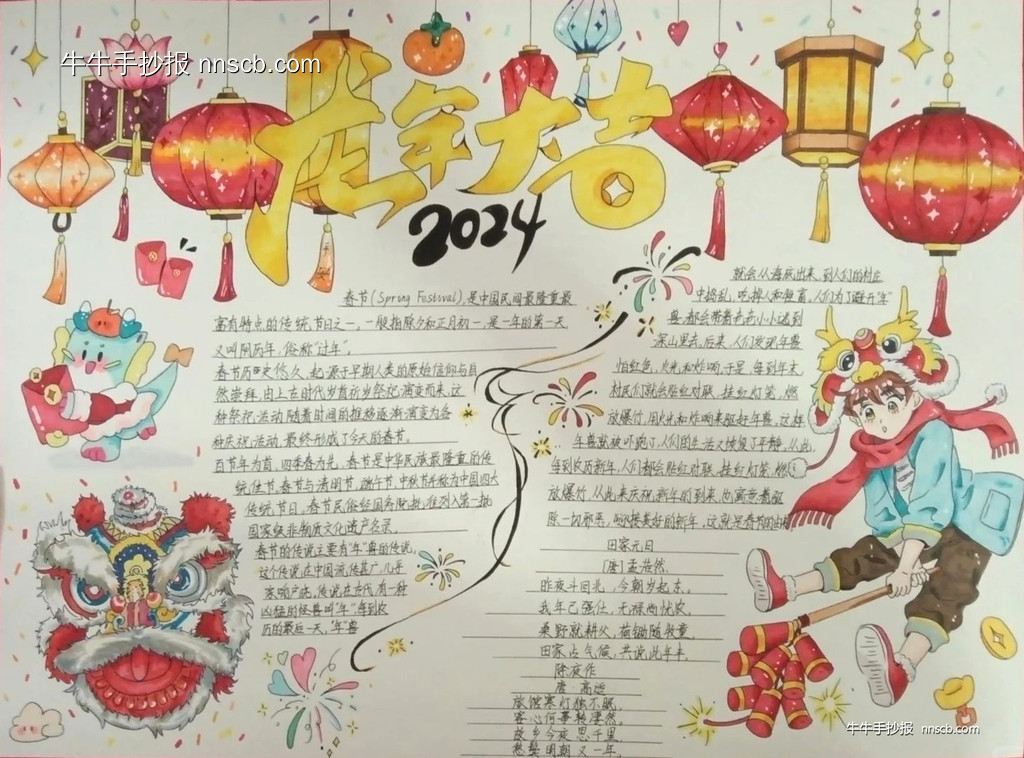 牛牛手抄报 nnscb.com
龙年大吉
2024
春节(Spring Festival),是中国民间最隆重最
富有特点的传统节日之一,一般指除夕和正月初一,是一年的第一天
又叫阴历年,俗称"过年"。
春节历史悠久,起源于早期人类的原始信仰与自
然崇拜,由上古时代岁首祈岁祭祀演变而来,这
种祭祀活动随着时间的推移逐渐演变为各
种庆祝活动,最终形成了今天的春节。
百节年为首,四季春为先,春节是中华民族最隆重的传
统佳节,春节与清明节、端午节、中秋节并称为中国四大
传统节日,春节民俗经国务院批准列入第一批
国家级非物质文化遗产名录。
春节的传说主要有"年"兽的传说,
这个传说在中国流传甚广,几乎
家喻户晓,传说在古代有一种
凶猛的怪兽叫"年"每到农
历的最后一天,"年"兽
就会从海底出来,到人们的村庄
中捣乱,吃掉人和牲畜,人们为了避开"年"
兽,都会带着老老小小逃到
深山里去,后来,人们发现年兽
怕红色、火光和炸响,于是,每到年末
村民们就会贴红对联、挂红灯笼、燃
放爆竹,用火光和炸响来驱赶年兽,这样
年兽就被吓跑了,人们的生活又恢复了平静,从此,
每到农历新年,人们都会贴红对联、挂红灯笼、燃
放爆竹,从此来庆祝新年的到来,也寓意着驱
除一切邪恶,迎接美好的新年,这就是春节的由来
田家元日
[唐]孟浩然
昨夜斗回北,今朝岁起东。
我年已强仕,无禄尚忧农。
桑野就耕父,荷锄随牧童。
田家占气候,共说此年丰。
除夜作
唐 高适
旅馆寒灯独不眠,
客心何事转凄然。
故乡今夜思千里,
愁鬓明朝又一年。
牛牛手抄报 nnscb.com